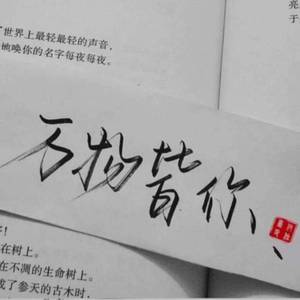 亮
于
"世界上最轻最轻的声音,
地唤你的名字每夜每夜。
万物皆你、
!
在树上。
在不凋的生命树上。
成了参天的古木时,